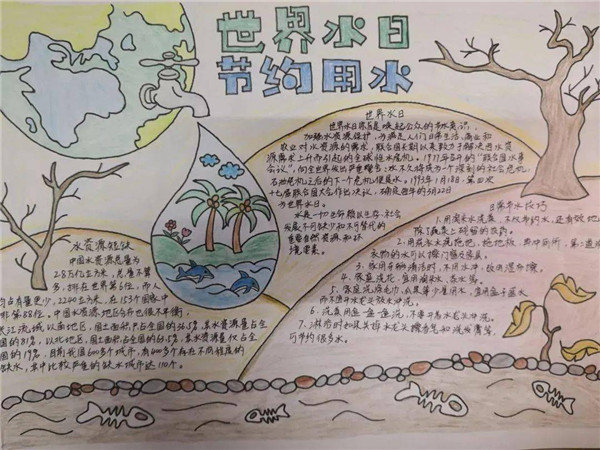 世界水日
节约用水
世界水日
世界水日宗旨是唤起公众的节水意识,
加强水资源保护,为满足人们日常生活、商业和
农业对水资源的需求,联合国长期以来致力于解决因水资
源需求上升而引起的全球性水危机。1977年召开的“联合国水事
会议”,向全世界发出严重警告:水不久将成为一个深刻的社会危机,
石油危机之后的下一个危机便是水。1993年1月18日,第四次
十七届联合国大会作出决议,确定每年的3月22日
为世界水日。
水是一切生物赖以生存,社会
发展不可缺少和不可替代的
重要自然资源和环
境要素。
水资源短缺
中国水资源总量为
2.8万亿立方米,总量不算
多,排在世界第6位,而人
均占有量更少,2240立方米,在153个国家中
排第88位。中国水资源地区分布也很不平衡,
长江流域以南地区,国土面积占全国的36.5%,其水资源量占全
国的81%,以北地区,国土面积占全国的63.5%,其水资源量仅占全
国的19%,目前我国600多个城市,有400多个存在不同程度的
缺水,其中比较严重的缺水城市达110个。
节水技巧
1.用淘米水洗菜,不仅节约水,还有效地
除了蔬菜上的残留的农药。
2.用洗衣水洗拖把、拖地板、再冲厕所,第二道
衣物的水可以擦门窗及家具。
3.家用
4.家庭浇花,宜用淘米水、茶水等。
6.洗菜用盆一盆一盆洗,不要开着水龙头冲洗。
7.淋浴时如果关掉水龙头擦香皂和洗发膏等,
可节约很多水。